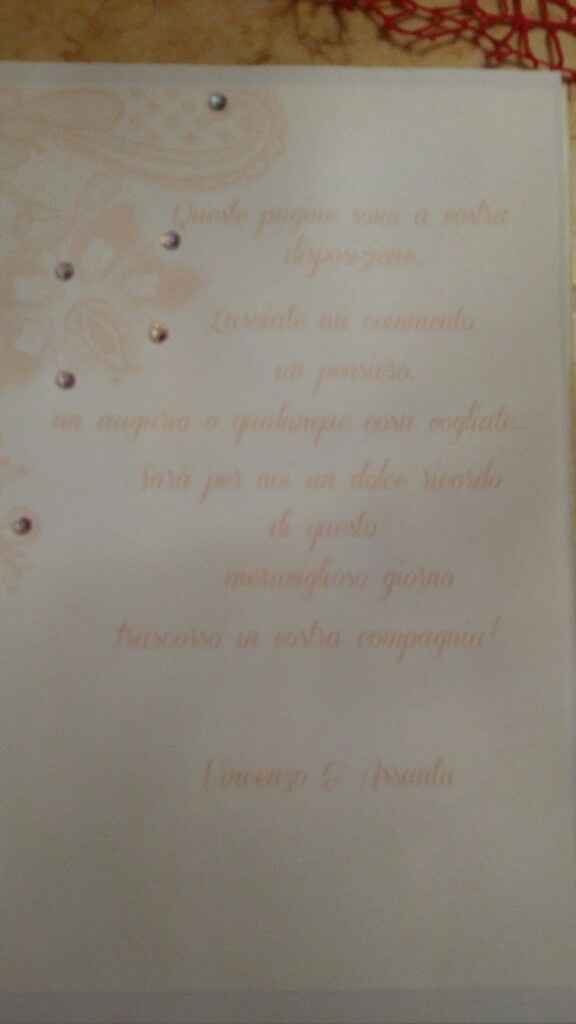 Queste pagine sono a vostra
disposizione.
Lasciate un commento
un pensiero,
un augurio o qualunque cosa vogliate...
sarà per noi un dolce ricordo
di questo
meraviglioso giorno
trascorso in vostra compagnia!
Vincenzo & Assunta